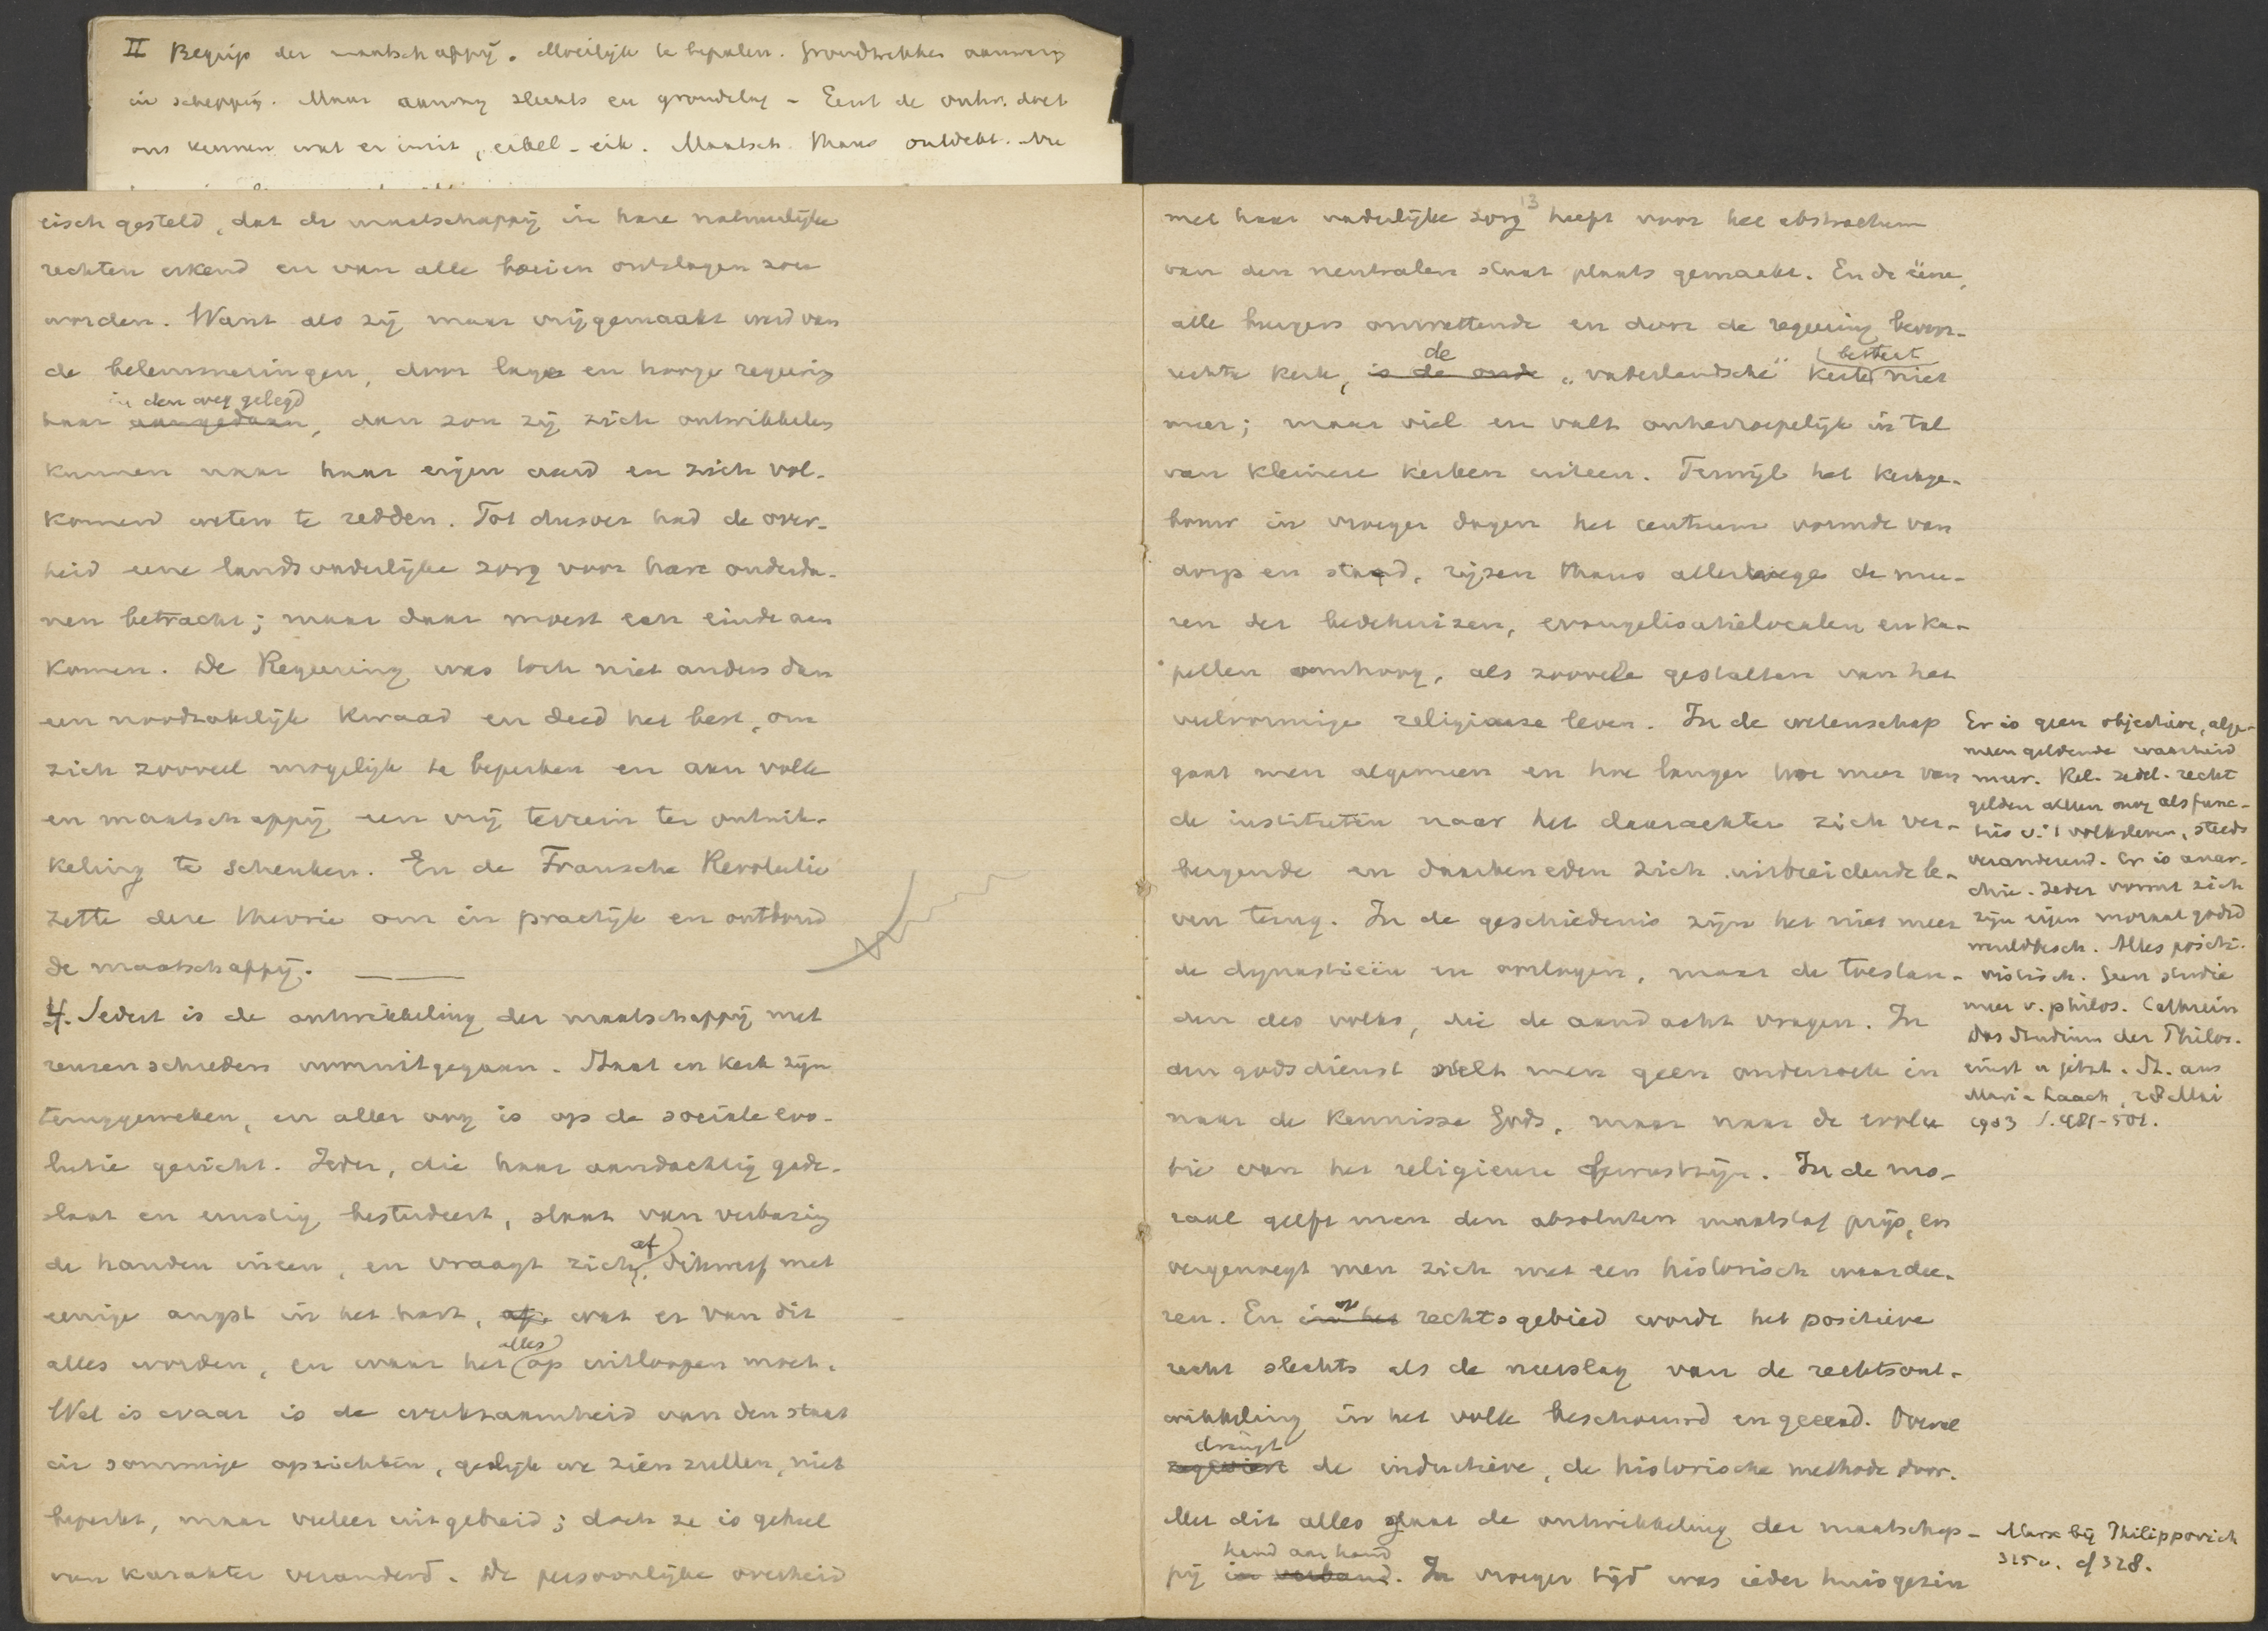 II Begrip der maatschappij. Moeilijk te bepalen. Grondtrekken aanwezig
in schepping. Maar aanvang slechts en grondslag - Eerst de ontw. doet
ons kennen wat er in is, eikel - eik. Maatsch. thans ontdekt. Nu
eisch gesteld, dat de maatschappij in hare natuurlijke
rechten erkend en van alle boeien ontslagen zou
worden. Want als zij maar vrijgemaakt werd van
de belemmeringen, door lage en hooge regeering
in den weg gelegd
haar aangedaan, dan zou zij zich ontwikkelen
kunnen naar haar eigen aard en zich vol-
komend weten te redden. Tot dusver had de over-
heid eene landsvaderlijke zorg voor hare onderda-
nen betracht; maar daar moest een einde aan
komen. De Regeering was toch niet anders dan
een noodzakelijk kwaad en deed het best, om
zich zooveel mogelijk te beperken en aan volk
en maatschappij een vrij terrein ter ontwik-
keling te schenken. En de Fransche Revolutie
zette deze theorie om in practijk en ontbond
de maatschappij.
4. Sedert is de ontwikkeling der maatschappij met
reuzenschreden vooruitgegaan. Staat en kerk zijn
teruggeweken, en aller oog is op de sociale evo-
lutie gericht. Ieder, die haar aandachtig gade-
slaat en ernstig bestudeert, slaat van verbazing
de handen ineen, en vraagt zich af dikwerf met
eenige angst in het hart, af. wat er van dit
alles worden, en waar het alles op uitloopen moet.
Wel is waar is de werkzaamheid van den staat
in sommige opzichten, gelijk we zien zullen, niet
beperkt, maar veeleer uitgebreid; doch ze is geheel
van karakter veranderd. De persoonlijke overheid
13
met haar vaderlijke zorg heeft voor het abstractum
van den neutralen staat plaats gemaakt. En de ééne,
alle burgers omvattende en door de regeering bevoor-
rechte kerk, is de oude de "vaderlandsche" kerk bestaat niet
meer; maar viel en valt onherroepelijk in tal
van kleinere kerken uiteen. Terwijl het kerkge-
bouw in vroeger dagen het centrum vormde van
dorp en stad, rijzen thans allerwege de mu-
ren der bedehuizen, evangelisatielocalen en ka-
pellen omhoog, als zoovele gestalten van het
veelvormige religieuse leven. In de wetenschap
gaat men algemeen en hoe langer hoe meer van
de instituten naar het daarachter zich ver-
bergende en daarbeneden zich uitbreidende le-
ven terug. In de geschiedenis zijn het niet meer
de dynastieën en oorlogen, maar de toestan-
den des volks, die de aandacht vragen. In
den godsdienst stelt men geen onderzoek in
naar de kennisse Gods, maar naar de evolu
tie van het religieuse bewustzijn. In de mo-
raal geeft men den absoluten maatstaf prijs, en
vergenoegt men zich met een historisch waardee-
ren. En in het op rechtsgebied wordt het positieve
recht slechts als de neerslag van de rechtsont-
wikkeling in het volk beschouwd en geeerd. Overal
dringt
zegeviert de inductieve, de historische methode door.
Met dit alles gaat de ontwikkeling der maatschap-
hand aan hand
pij in verband. In vroeger tijd was ieder huisgezin
Er is geen objectieve, alge-
meen geldende waarheid
meer. Rel. zedel. recht
gelden alleen nog als func-
tiis v. 't volksleven, steeds
veranderend. Er is anar-
chie. Ieder vormt zich
zijn eigen moraal godsd
wereldbesch. Alles positi-
vistisch. Geen studie
meer v. philos. Cathrein
Das Studium der Philos.
einst u jetzt. St. aus
Maria Laach, 28 Mai
1903 S. 481-501.
Marx bij Philippovich
325 v. cf 328.